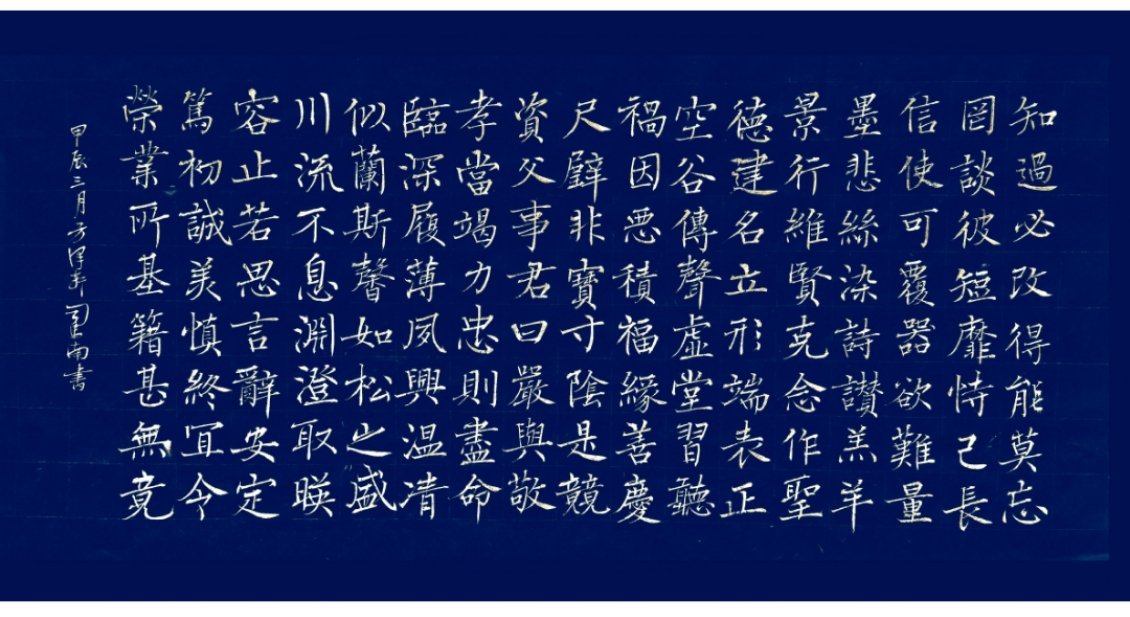 知過必改得能莫忘
罔談彼短靡恃己長
信使可覆器欲難量
墨悲絲染詩讚羔羊
景行維賢克念作聖
德建名立形端表正
空谷傳聲虛堂習聽
禍因惡積福緣善慶
尺璧非寶寸陰是競
資父事君曰嚴與敬
孝當竭力忠則盡命
臨深履薄夙興温凊
似蘭斯馨如松之盛
川流不息淵澄取暎
容止若思言辭安定
篤初誠美慎終宜令
榮業所基籍甚無竟
甲辰三月 南書